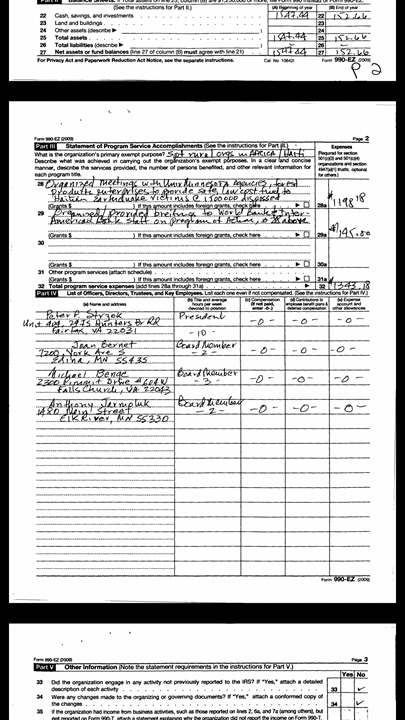 (See the instructions for Part II.)
(A) Beginning of year (B) End of year
22 Cash, savings, and investments 1547.44 22 152.66
23 Land and buildings 23
24 Other assets (describe ▶ ) 24
25 Total assets 1547.44 25 152.66
26 Total liabilities (describe ▶ ) 26
27 Net assets or fund balances (line 27 of column (B) must agree with line 21) 27 152.66
For Privacy Act and Paperwork Reduction Act Notice, see the separate instructions. Cat. No. 10642I Form 990-EZ (2009)
P 2
Form 990-EZ (2009) Page 2
Part III Statement of Program Service Accomplishments (See the instructions for Part III.)
Expenses
(Required for section 501(c)(3) and 501(c)(4) organizations and section 4947(a)(1) trusts; optional for others.)
What is the organization's primary exempt purpose? Spt rural orgs in AFRICA/Haiti
Describe what was achieved in carrying out the organization's exempt purposes. In a clear and concise
manner, describe the services provided, the number of persons benefited, and other relevant information for
each program title.
28 Organized Meetings with Univ Minnesota Agencies, forest
products enterprises to provide safe, low cost fuel to
Haitian earthquake victims @ 1500000 disposed
(Grants $ ) If this amount includes foreign grants, check here ▶ 28a 1198.18
29 Organized/Provided briefings to World Bank & Inter-
American Bank Staff on program of Actions, @ 28 above
(Grants $ ) If this amount includes foreign grants, check here ▶ 29a 145.00
30
(Grants $ ) If this amount includes foreign grants, check here ▶ 30a
31 Other program services (attach schedule)
(Grants $ ) If this amount includes foreign grants, check here ▶ 31a
32 Total program service expenses (add lines 28a through 31a) ▶ 32 1343.18
Part IV List of Officers, Directors, Trustees, and Key Employees. List each one even if not compensated. (See the instructions for Part IV.)
(a) Name and address
(b) Title and average hours per week devoted to position
(c) Compensation (If not paid, enter -0-.)
(d) Contributions to employee benefit plans & deferred compensation
(e) Expense account and other allowances
Peter P. Strzok President
Unit 404, 2975 Hunters Br Rd -0- -0- -0-
Fairfax, VA 22031 -10-
Joan Bernet Board Member
7200 York Ave S -2- -0- -0- -0-
Edina, MN 55435
Michael Benge Board Member
2300 Pimmit Drive #604W -3- -0- -0- -0-
Falls Church, VA 22043
Anthony Jarmoluk Board Member
1480 Main Street -2- -0- -0- -0-
Elk River, MN 55330
Form 990-EZ (2009)
Form 990-EZ (2009) Page 3
Part V Other Information (Note the statement requirements in the instructions for Part V.)
Yes No
33 Did the organization engage in any activity not previously reported to the IRS? If "Yes," attach a detailed
description of each activity 33 ✓
34 Were any changes made to the organizing or governing documents? If "Yes," attach a conformed copy of
the changes 34 ✓
35 If the organization had income from business activities, such as those reported on lines 2, 6a, and 7a (among others), but
not reported on Form 990-T, attach a statement explaining why the organization did not report the income on Form 990-T.